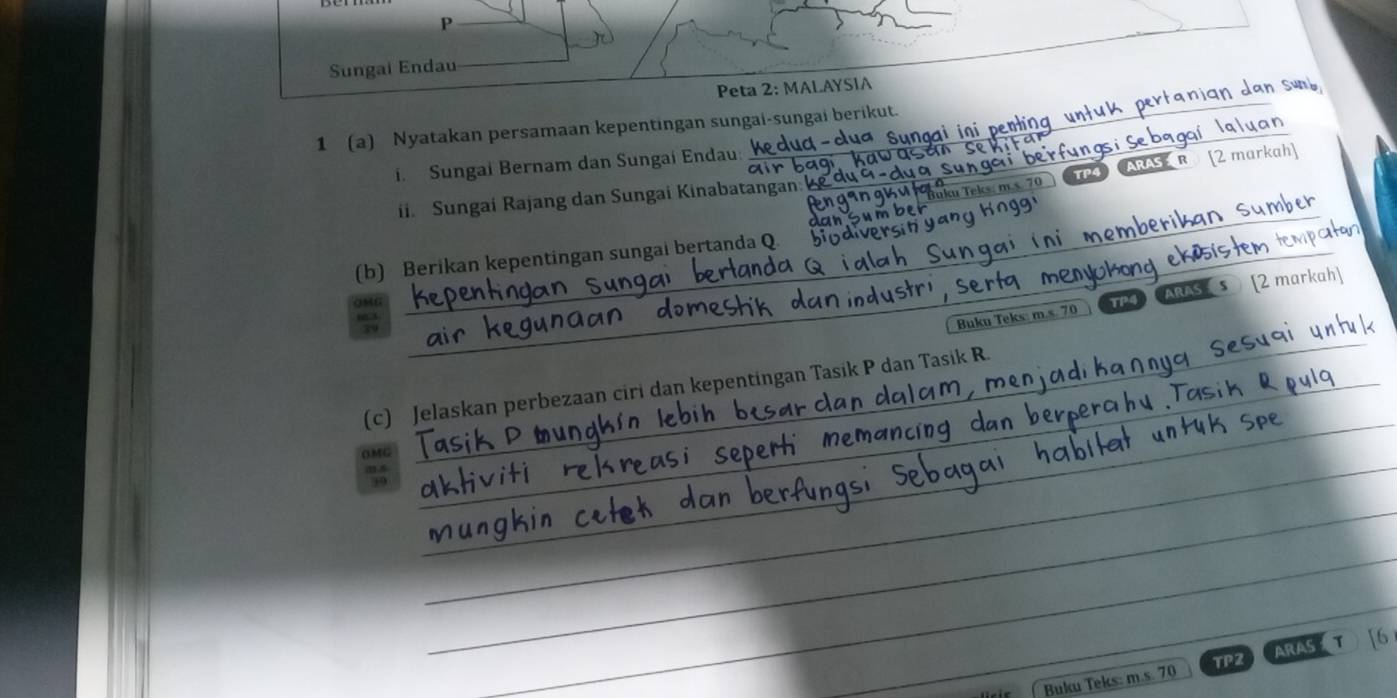 P
Sungai Endau
Peta 2: MALAYSIA
1 (a) Nyatakan persamaan kepentingan sungai-sungai berikut.
i. Sungai Bernam dan Sungai Endau: Kedua-dua sungai ini penting untuk pertanian dan sumb
air bagi kawasan sekitar
ii. Sungai Rajang dan Sungai Kinabatangan: Kedua-dua sungai berfungsi sebagai laluan
pengangkutan
dan sumber
biodiversiti yang tinggi
Buku Teks: m.s. 70 TP4 ARAS R [2 markah]
(b) Berikan kepentingan sungai bertanda Q.
OMG m.s. 39
Kepentingan sungai bertanda Q ialah Sungai ini memberikan sumber
air kegunaan domestik dan industri, serta menyokong ekosistem tempatan
Buku Teks: m.s. 70 TP4 ARAS S [2 markah]
(c) Jelaskan perbezaan ciri dan kepentingan Tasik P dan Tasik R.
OMG m.s. 39
Tasik P mungkin lebih besar dan dalam, menjadikannya sesuai untuk
aktiviti rekreasi seperti memancing dan berperahu. Tasik R pula
mungkin cetek dan berfungsi sebagai habitat untuk spe
Buku Teks: m.s. 70 TP2 ARAS T [6